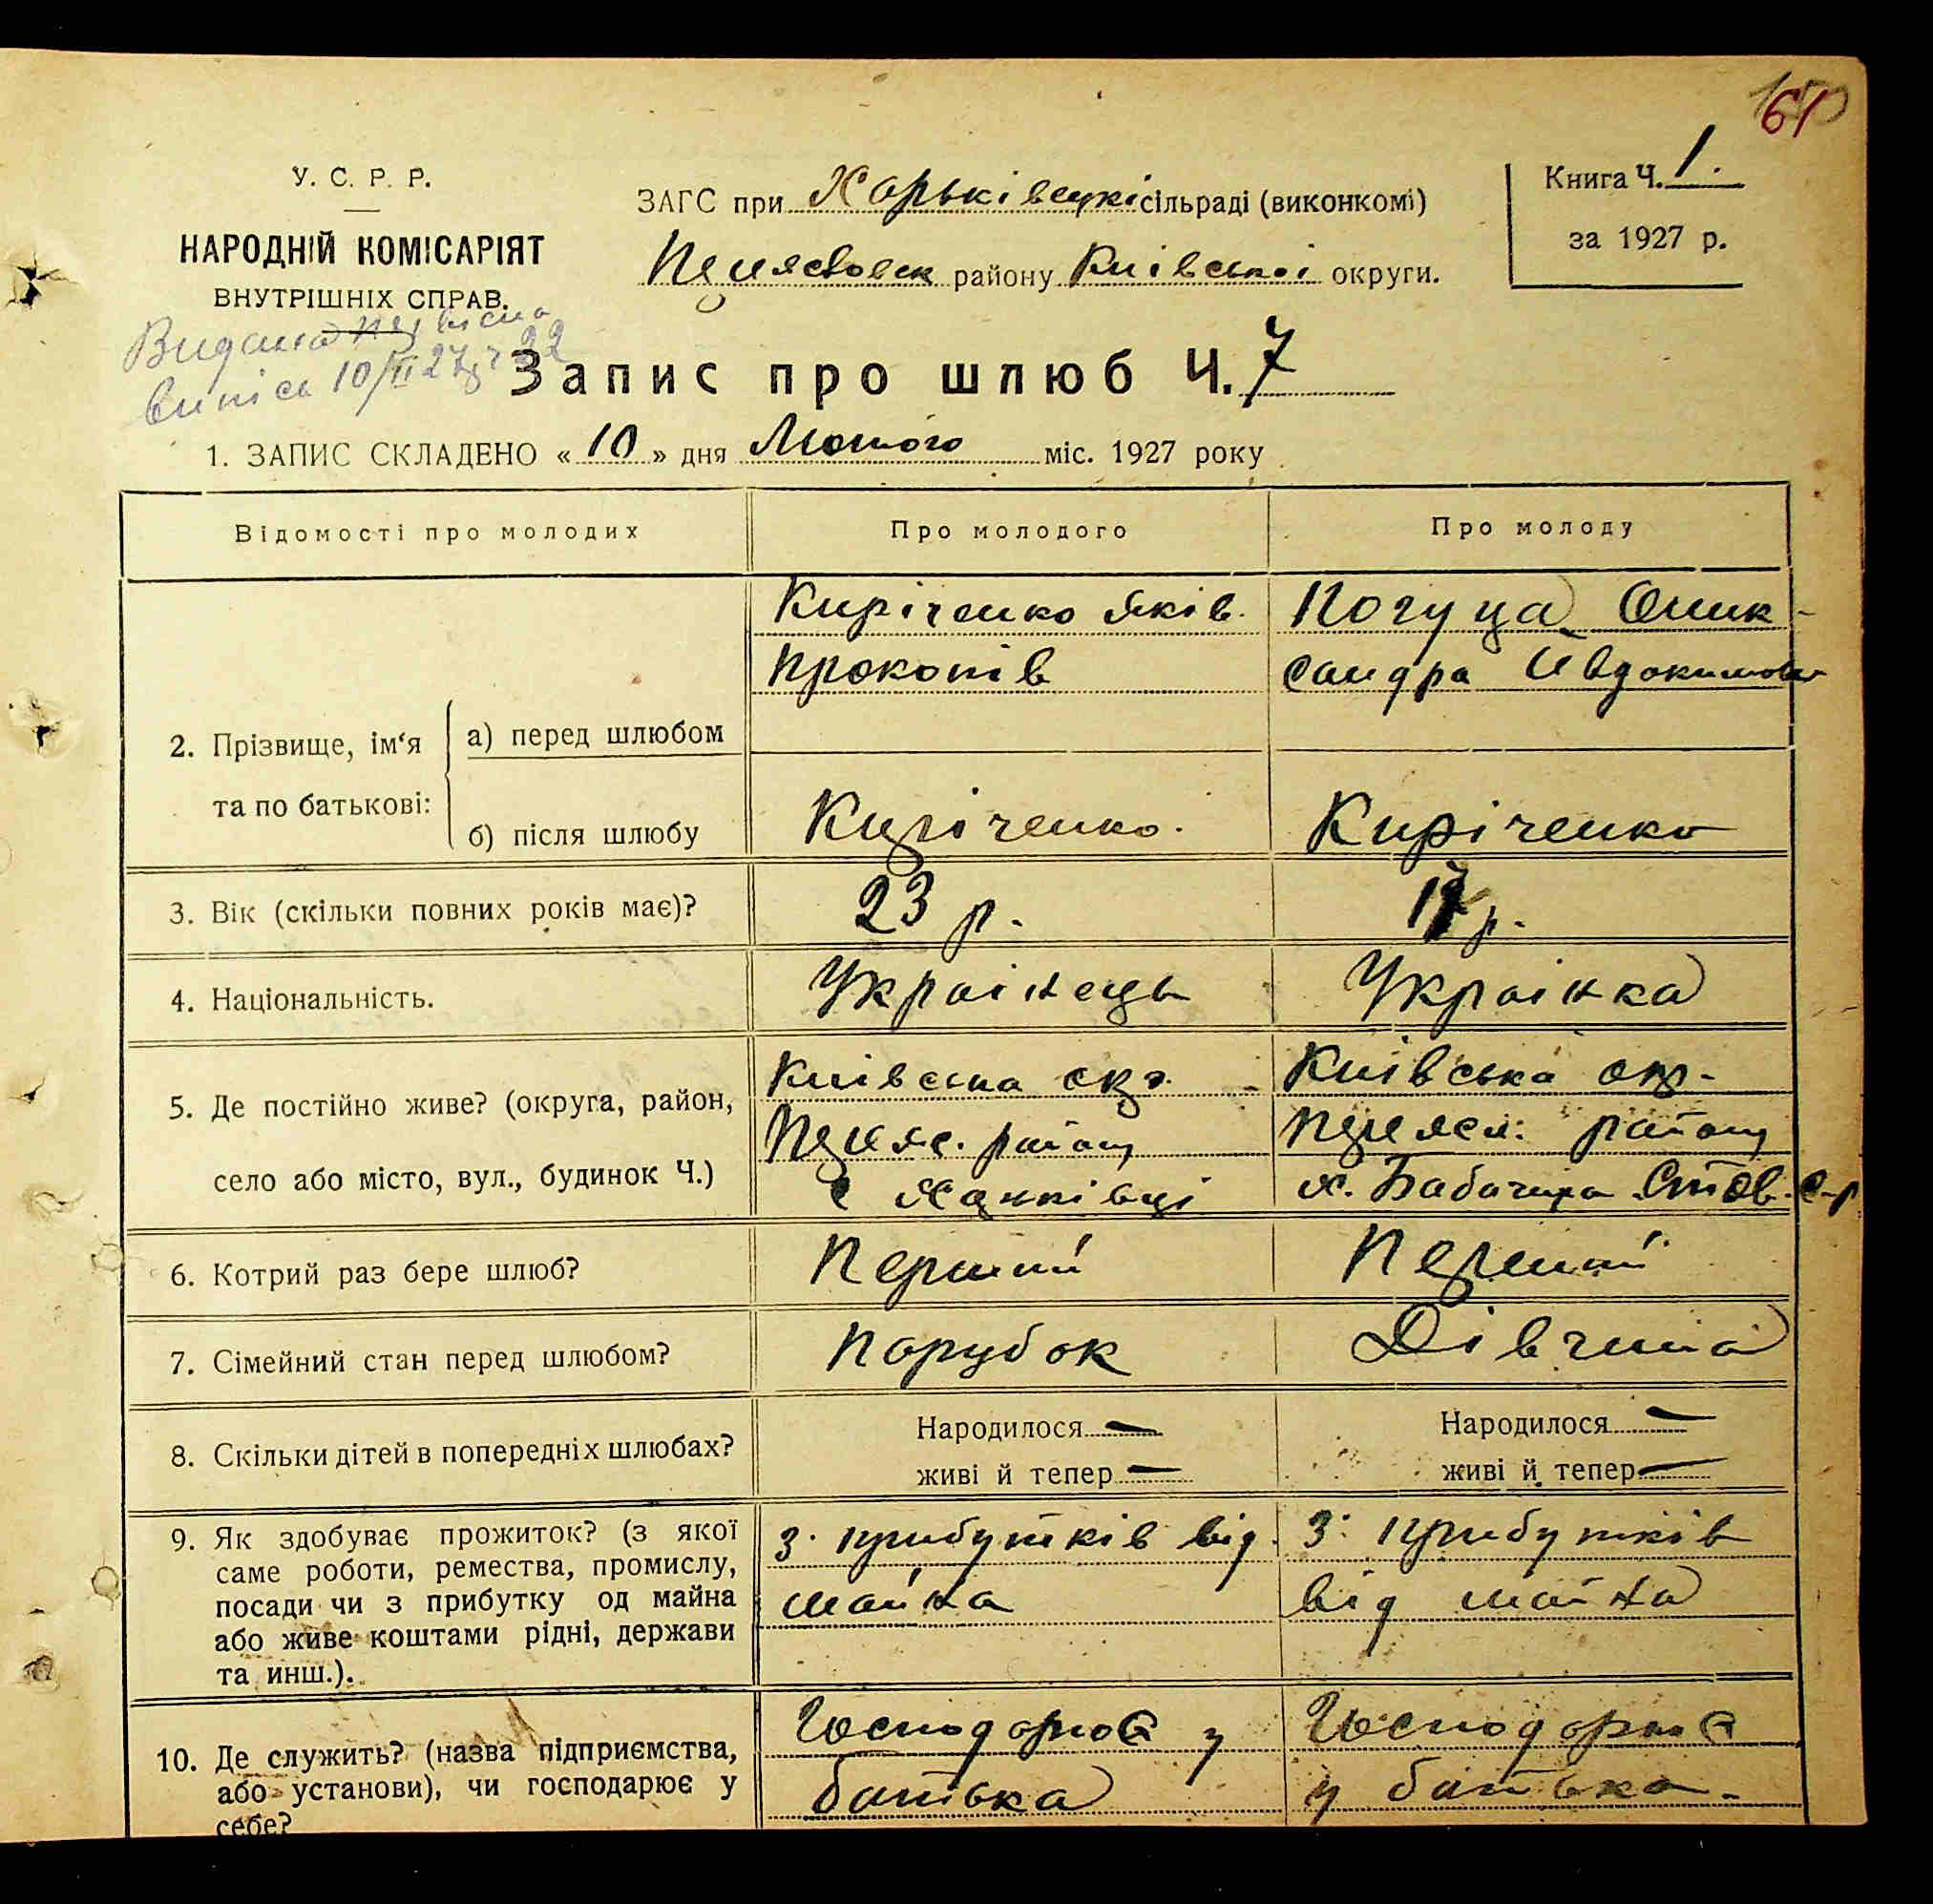 61
У. С. Р. Р.
НАРОДНІЙ КОМІСАРІЯТ
ВНУТРІШНІХ СПРАВ.
ЗАГС при Харьківецкі сільраді (виконкомі)
району Київської округи.
Книга Ч. 1.
за 1927 р.
Видана
випісь 10/II 27 р 22
Запис про шлюб Ч. 7
1. ЗАПИС СКЛАДЕНО « 10 » дня Лютого міс. 1927 року
Відомості про молодих Про молодого Про молоду
2. Прізвище, ім‘я та по батькові:
а) перед шлюбом
Киріченко Яків
Прокопів
Погуца Олик-
сандра Овдокимовн
б) після шлюбу Киріченко. Киріченко
3. Вік (скільки повних років має)? 23 р. 17 р.
4. Національність. Українець Українка
5. Де постійно живе? (округа, район,
село або місто, вул., будинок Ч.)
Київська окр.
Переяс. району
с
Київська окр.
Переясл. району
х. Бабачиха Стов. с-р
6. Котрий раз бере шлюб? Перший Перший
7. Сімейний стан перед шлюбом? Парубок Дівчина
8. Скільки дітей в попередніх шлюбах? Народилося — Народилося —
живі й тепер — живі й тепер —
9. Як здобуває прожиток? (з якої
саме роботи, ремества, промислу,
посади чи з прибутку од майна
або живе коштами рідні, держави
та инш.).
З прибутків від
майна
З прибутків
від майна
10. Де служить? (назва підприємства,
або установи), чи господарює у
себе?
Господорює у
батька
Господорює
у батька.